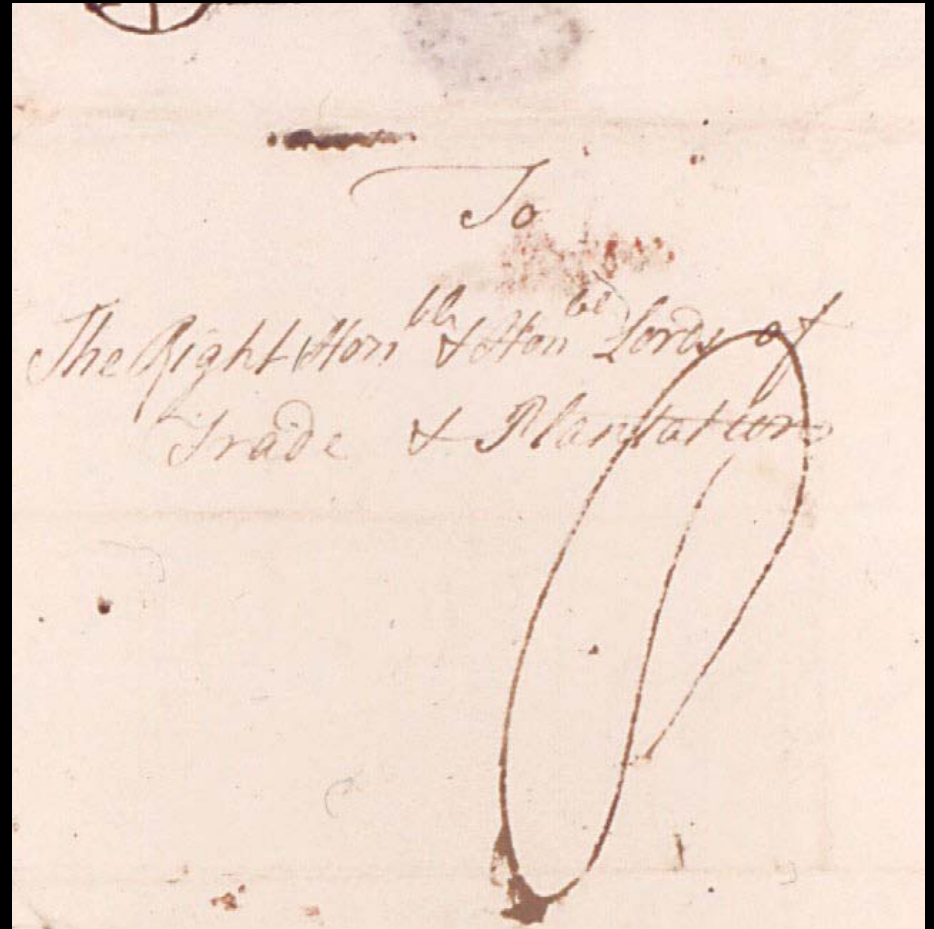 To
The Right Hon ble & Hon ble Lords of
Trade & Plantations